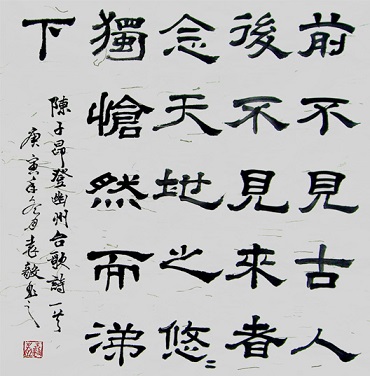 前不見古人
後不見來者
念天地之悠〻
獨愴然而涕
下
陳子昂登幽州台歌詩一首
庚寅年冬月袁